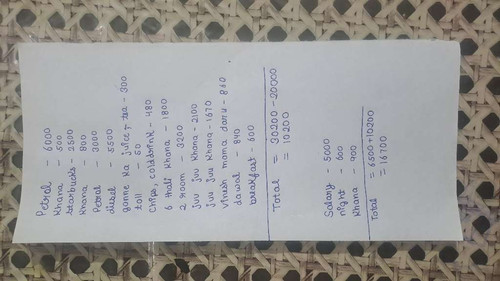 Petrol - 6000
Khana - 500
Starbucks - 2500
Khana - 800
Petrol - 2000
diesel - 5500
ganne ka juice + tea - 300
toll - 60
Chips, colddrink - 480
6 thali khana - 1800
2 room - 3200
juu juu khana - 2100
juu juu khana - 1670
Vinesh mama daru - 840
dawat 840
breakfast - 600
Total = 30200 - 20000
= 10200
Salary - 5000
night - 600
Khana - 900
Total = 6500 + 10200
= 16700